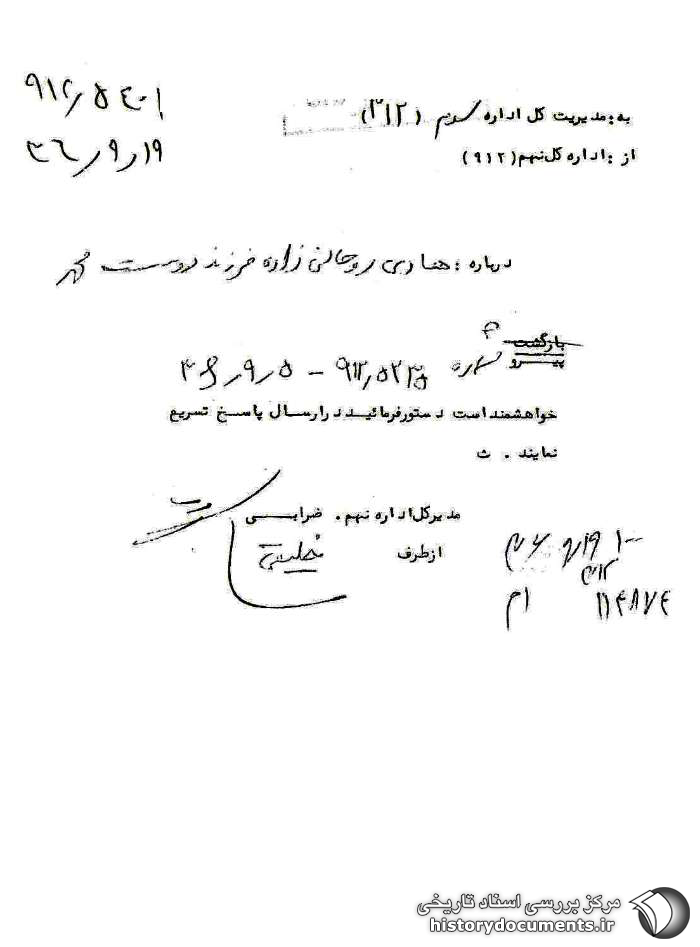 به: مدیریت کل اداره سوم (۳۱۲)
۹۱۲٫۵۴۰۱
از: اداره کل نهم (۹۱۲)
۳۶٫۹٫۱۹
درباره: هادی روحانی زاده فرزند دوست محمد
بازگشت
پیرو شماره ۹۱۲٫۵۲۳۵ - ۳۶٫۹٫۵
خواهشمند است دستور فرمائید در ارسال پاسخ تسریع
نمایند. ث
مدیرکل اداره نهم. ضرابی
از طرف
۳۶٫۹٫۱۹
۳۱۲
۱۱۴۸۷۴
مرکز بررسی اسناد تاریخی
historydocuments.ir